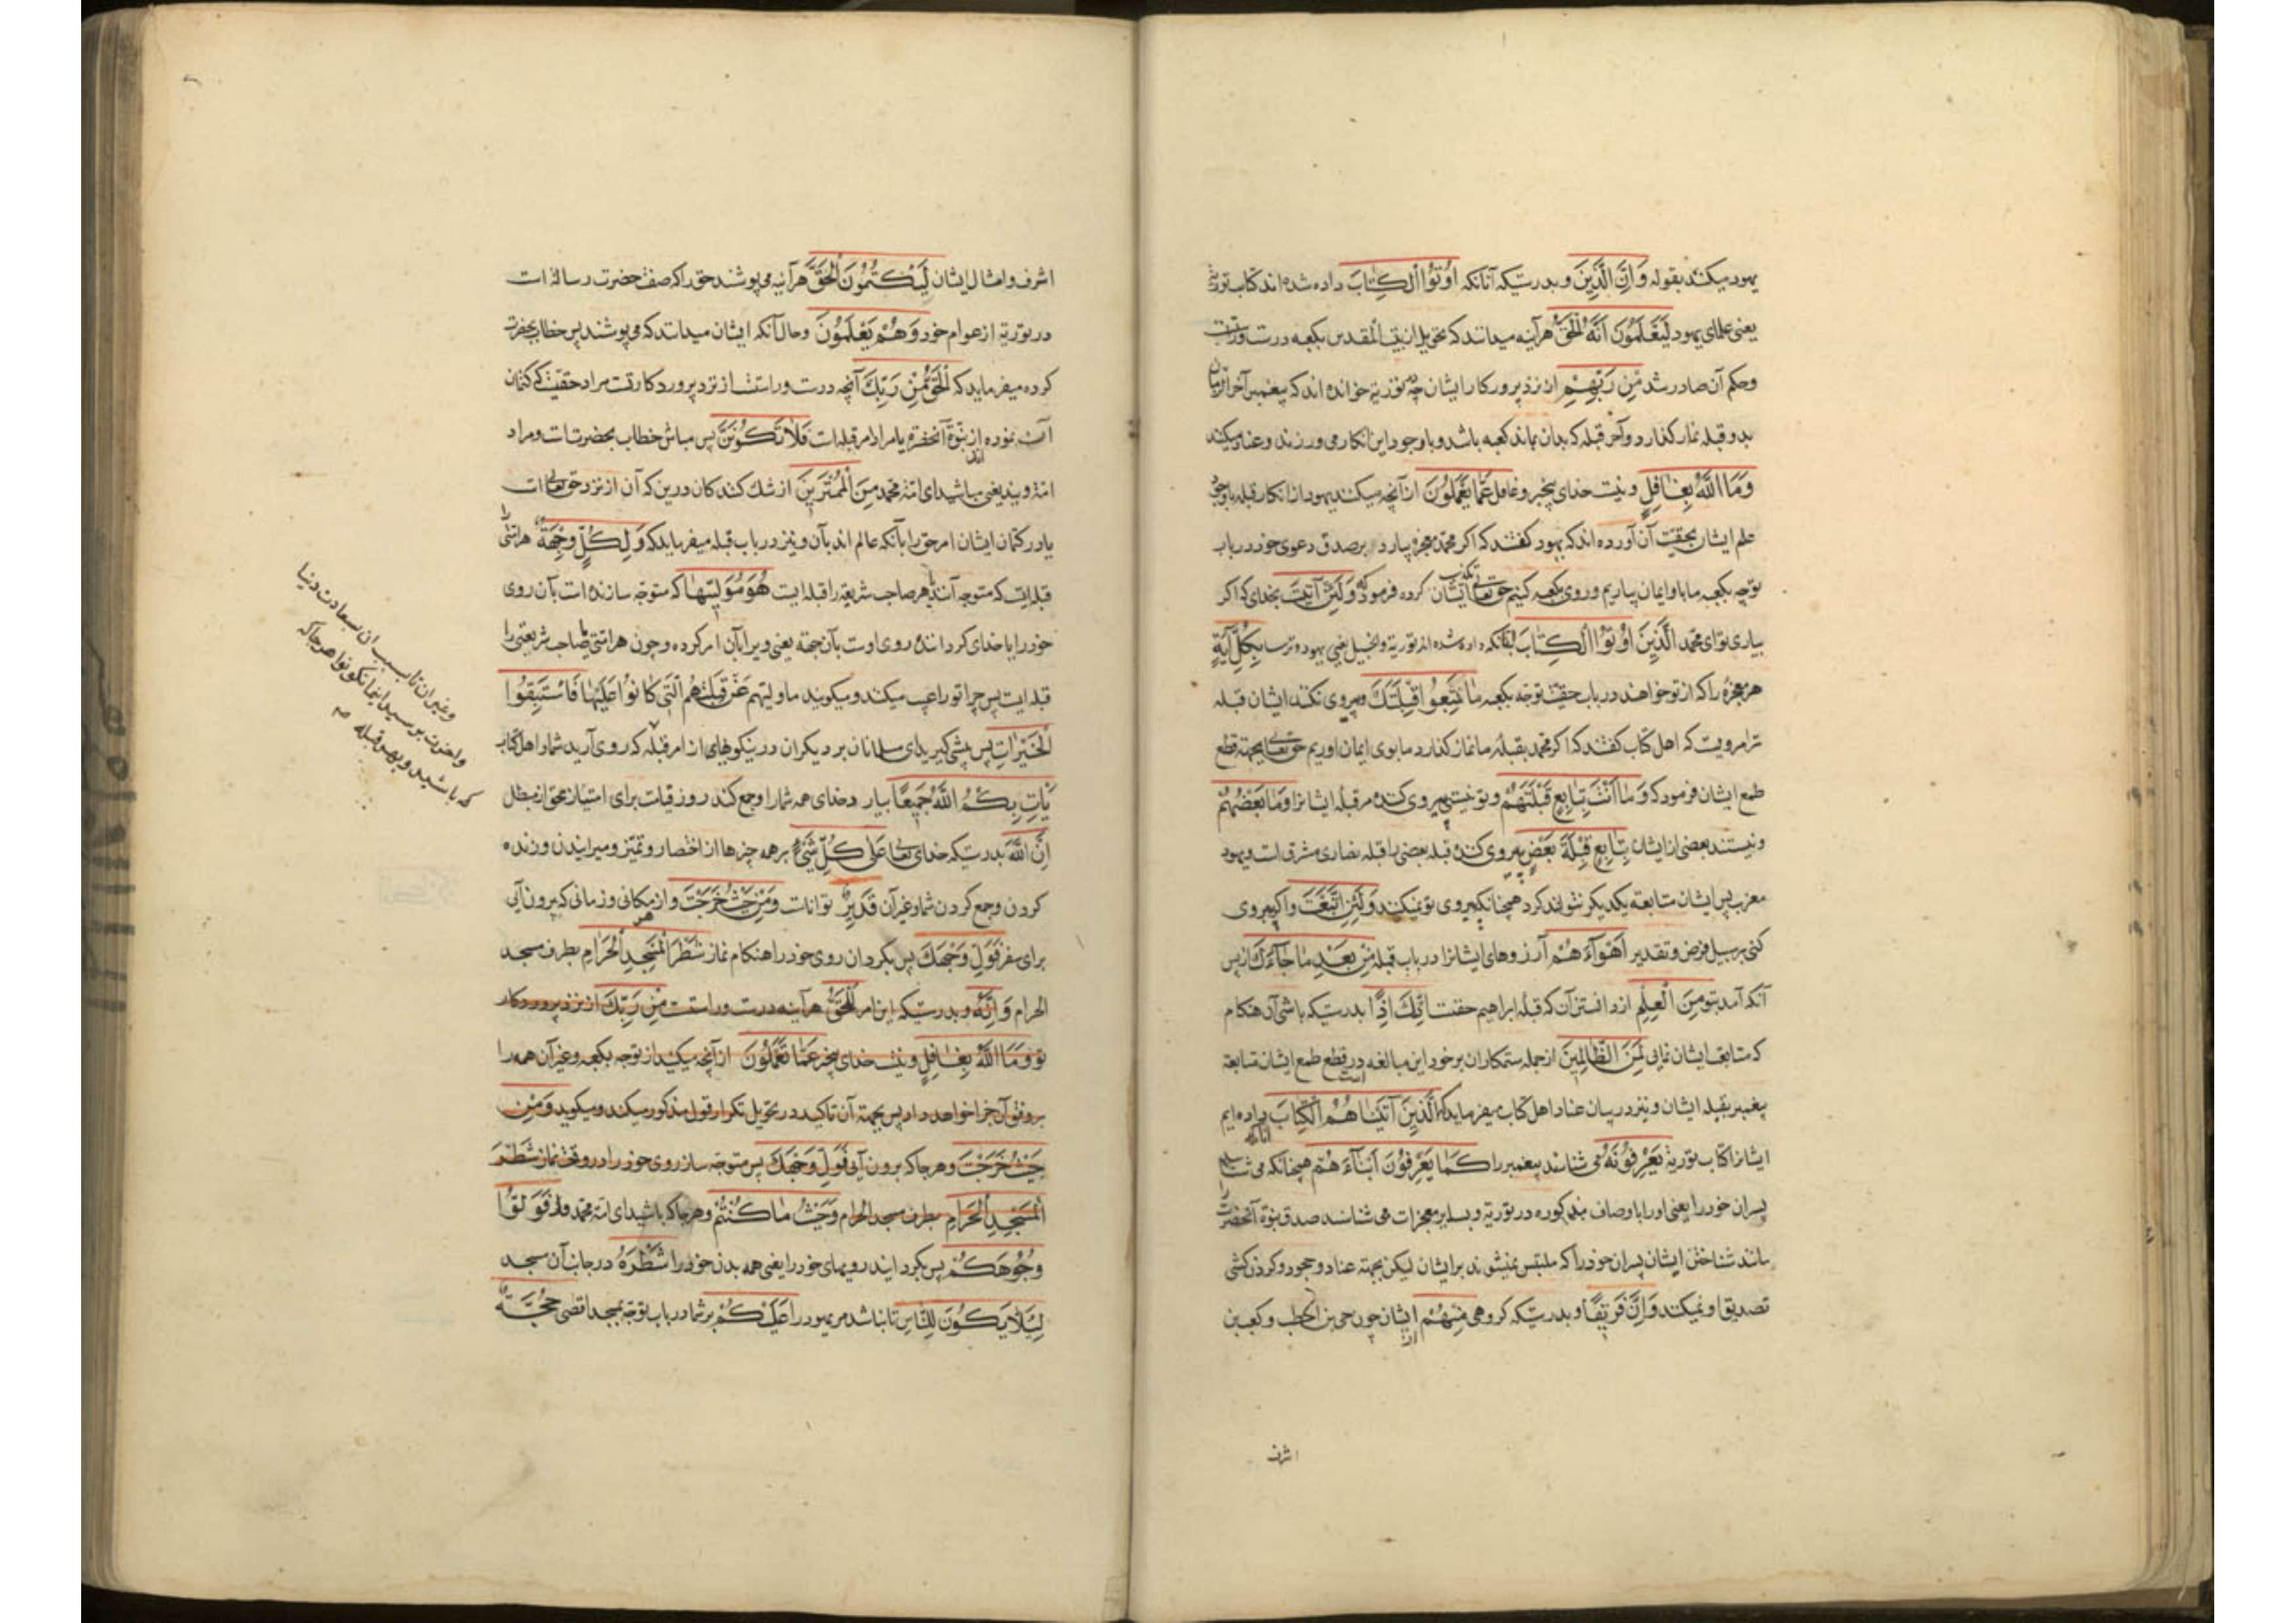 یهود میکند بقوله وَاِنَّ الَّذِینَ و بدرستیکه آنانکه اُوتُوا الْکِتَابَ داده شده اند کتاب توریة
یعنی علمای یهود لَیَعْلَمُونَ اَنَّهُ الْحَقُّ هرآینه میدانند که تحویل از بیت المقدس بکعبه درست و راست
وحکم آن صادر شد مِنْ رَبِّهِمْ از نزد پروركار ایشان چه در توریة خوانده اند که پیغمبر آخرالزمان
بدو قبله نماز گذارد و آخر قبله که بدان بماند کعبه باشد و با وجود این انکار می ورزند و عناد میکنند
وَمَا اللّٰهُ بِغَافِلٍ و نیست خدای بیخبر و غافل عَمَّا یَعْمَلُونَ از آنچه میکنند یهود از انکار قبله با وجود
علم ایشان بحقیت آن آورده اند که یهود گفتند که اگر محمد معجزه بیارد بر صدق دعوی خود در باب
توجه بکعبه ما باو ایمان بیاریم و روی بکعبه کنیم حق تعالی تکذیب ایشان کرده فرمود که وَلَئِنْ اَتَیْتَ بخدای که اگر
بیاری تو ای محمد الَّذِینَ اُوتُوا الْکِتَابَ بآنانکه داده شده اند توریة و انجیل یعنی یهود و ترسا بِکُلِّ آیَةٍ
هر معجزه را که از تو خواهند در باب حقیت توجه بکعبه مَا تَبِعُوا قِبْلَتَکَ پیروی نکنند ایشان قبله
ترا مرویت که اهل کتاب گفتند که اگر محمد بقبلۀ ما نماز گذارد ما بوی ایمان اوریم حق تعالی بجهة قطع
طمع ایشان فرمود که وَمَا اَنْتَ بِتَابِعٍ قِبْلَتَهُمْ و تو نیستی پیروی کننده مر قبلۀ ایشانرا وَمَا بَعْضُهُمْ
و نیستند بعضی از ایشان بِتَابِعٍ قِبْلَةَ بَعْضٍ پیروی کننده قبله بعضی را قبله نصاری مشرق است و یهود
مغرب پس ایشان متابعة یکدیگر نتوانند کرد همچنانکه پیروی تو نمیکنند وَلَئِنِ اتَّبَعْتَ و اگر پیروی
کنی بر سبیل فرض و تقدیر اَهْوَآءَهُمْ آرزوهای ایشانرا در باب قبله مِنْ بَعْدِ مَا جَآءَکَ از پس
آنکه آمد بتو مِنَ الْعِلْمِ از دانستن آن که قبلۀ ابراهیم حقست اِنَّکَ اِذًا بدرستیکه باشی آن هنکام
که متابعت ایشان نمائی لَمِنَ الظَّالِمِینَ از جمله ستمکاران بر خود این مبالغه در قطع طمع ایشان است متابعة
پیغمبر بقبلۀ ایشان و نیز در بیان عناد اهل کتاب میفرماید که الَّذِینَ آتَیْنَاهُمُ الْکِتَابَ آنانکه داده ایم
ایشانرا کتاب توریة یَعْرِفُونَهُ می شناسند پیغمبر را کَمَا یَعْرِفُونَ اَبْنَآءَهُمْ همچنانکه می شناسند
پسران خود را یعنی او را باوصاف مذکوره در توریة و بسایر معجزات می شناسند صدق نبوة آنحضرت را
مانند شناختن ایشان پسران خود را که ملتبس نمیشوند بر ایشان لیکن بجهته عناد و جحود و گردن کشی
تصدیق او نمیکنند وَاِنَّ فَرِیقًا و بدرستیکه گروهی مِنْهُمْ از ایشان چون حی بن اخطب و کعب بن
اشرف
اشرف و امثال ایشان لَیَکْتُمُونَ الْحَقَّ هرآینه می پوشند حق را که صفت حضرت رسالة است
در توریة از عوام خود وَهُمْ یَعْلَمُونَ و حال آنکه ایشان میدانند که می پوشند پس خطاب بحضرت
کرده میفرماید که اَلْحَقُّ مِنْ رَبِّکَ آنچه درست و راستست از نزد پروردکار تست مراد حقیست که کتمان
آن نموده اند از نبوة آنحضرة یا مراد امر قبله است فَلَا تَکُونَنَّ پس مباش خطاب بحضرتست و مراد
امة ویند یعنی مباشید ای امة محمد مِنَ الْمُمْتَرِینَ از شك کنندکان درین که آن از نزد حق تعالی است
یا در کتمان ایشان امر حق را بآنکه عالم اند بآن و نیز در باب قبله میفرماید که وَلِکُلٍّ وِجْهَةٌ هر امتی را
قبله ایست که متوجه آنند یا هر صاحب شریعة را قبله ایست هُوَ مُوَلِّیهَا که متوجه سازنده است بآن روی
خود را یا خدای گرداننده روی اوست بآن جهة یعنی ویرا بآن امر کرده و چون هر امتی یا صاحب شریعتی را
قبله ایست پس چرا تو را عیب میکنند و میکویند ما ولیهم عَنْ قِبْلَتِهِمُ الَّتِی کَانُوا عَلَیْهَا فَاسْتَبِقُوا
الْخَیْرَاتِ پس پیشی کیرید ای مسلمانان بر دیکران در نیکوئیهای از امر قبله که روی آرید شما را اهل کتاب
یَأْتِ بِکُمُ اللّٰهُ جَمِیعًا بیارد خدای همه شما را و جمع کند روز قیامت برای امتیاز محق از مبطل
اِنَّ اللّٰهَ بدرستیکه خدای تعالی عَلٰی کُلِّ شَیْءٍ بر همه چیزها از احضار و تمیز و میرانیدن و زنده
کردن و جمع کردن شما و غیر آن قَدِیرٌ تواناست وَمِنْ حَیْثُ خَرَجْتَ و از هر مکانی و زمانی که بیرون آیی
برای سفر فَوَلِّ وَجْهَکَ پس بگردان روی خود را هنکام نماز شَطْرَ الْمَسْجِدِ الْحَرَامِ بطرف مسجد
الحرام وَاِنَّهُ و بدرستیکه این امر لَلْحَقُّ هرآینه درست و راستست مِنْ رَبِّکَ از نزد پروردکار
تو وَمَا اللّٰهُ بِغَافِلٍ و نیست خدای بیخبر عَمَّا تَعْمَلُونَ از آنچه میکنید از توجه بکعبه و غیر آن همه را
بر وفق آن جزا خواهد داد پس بجهة آن تاکید در تحویل تکرار قول مذکور میکند و میکوید وَمِنْ
حَیْثُ خَرَجْتَ و هرجا که برون آیی فَوَلِّ وَجْهَکَ پس متوجه ساز روی خود را در وقت نماز شَطْرَ
الْمَسْجِدِ الْحَرَامِ بطرف مسجد الحرام وَحَیْثُ مَا کُنْتُمْ و هرجا که باشید ای امة محمد فَوَلُّوا
وُجُوهَکُمْ پس بگردانید رویهای خود را یعنی همه بدن خود را شَطْرَهُ در جانب آن مسجد
لِئَلَّا یَکُونَ لِلنَّاسِ تا نباشد مر یهود را عَلَیْکُمْ بر شما در باب توجه بمسجد اقصی حُجَّةٌ
و غیر ان تا بسبب ان بسعادت دنیا
و اخرت برسید اینما تکونوا هرجا که
که باشید و بهر قبله